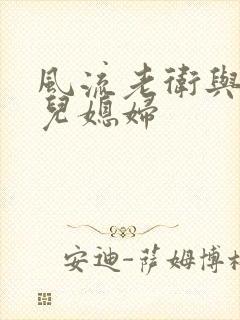 風流老衛與
兒媳婦
安迪-薩姆博